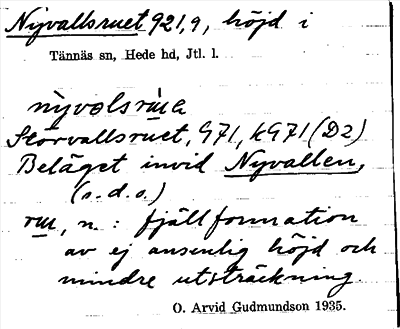 Nyvallsruet 921,9, höjd i
Tännäs sn, Hede hd, Jtl. l.
Storvallsruet, 971, k971 (D2)
Beläget invid Nyvallen,
(s.d.o.)
n.: fjällformation
av ej ansenlig höjd och
mindre utsträckning.
O. Arvid Gudmundson 1935.